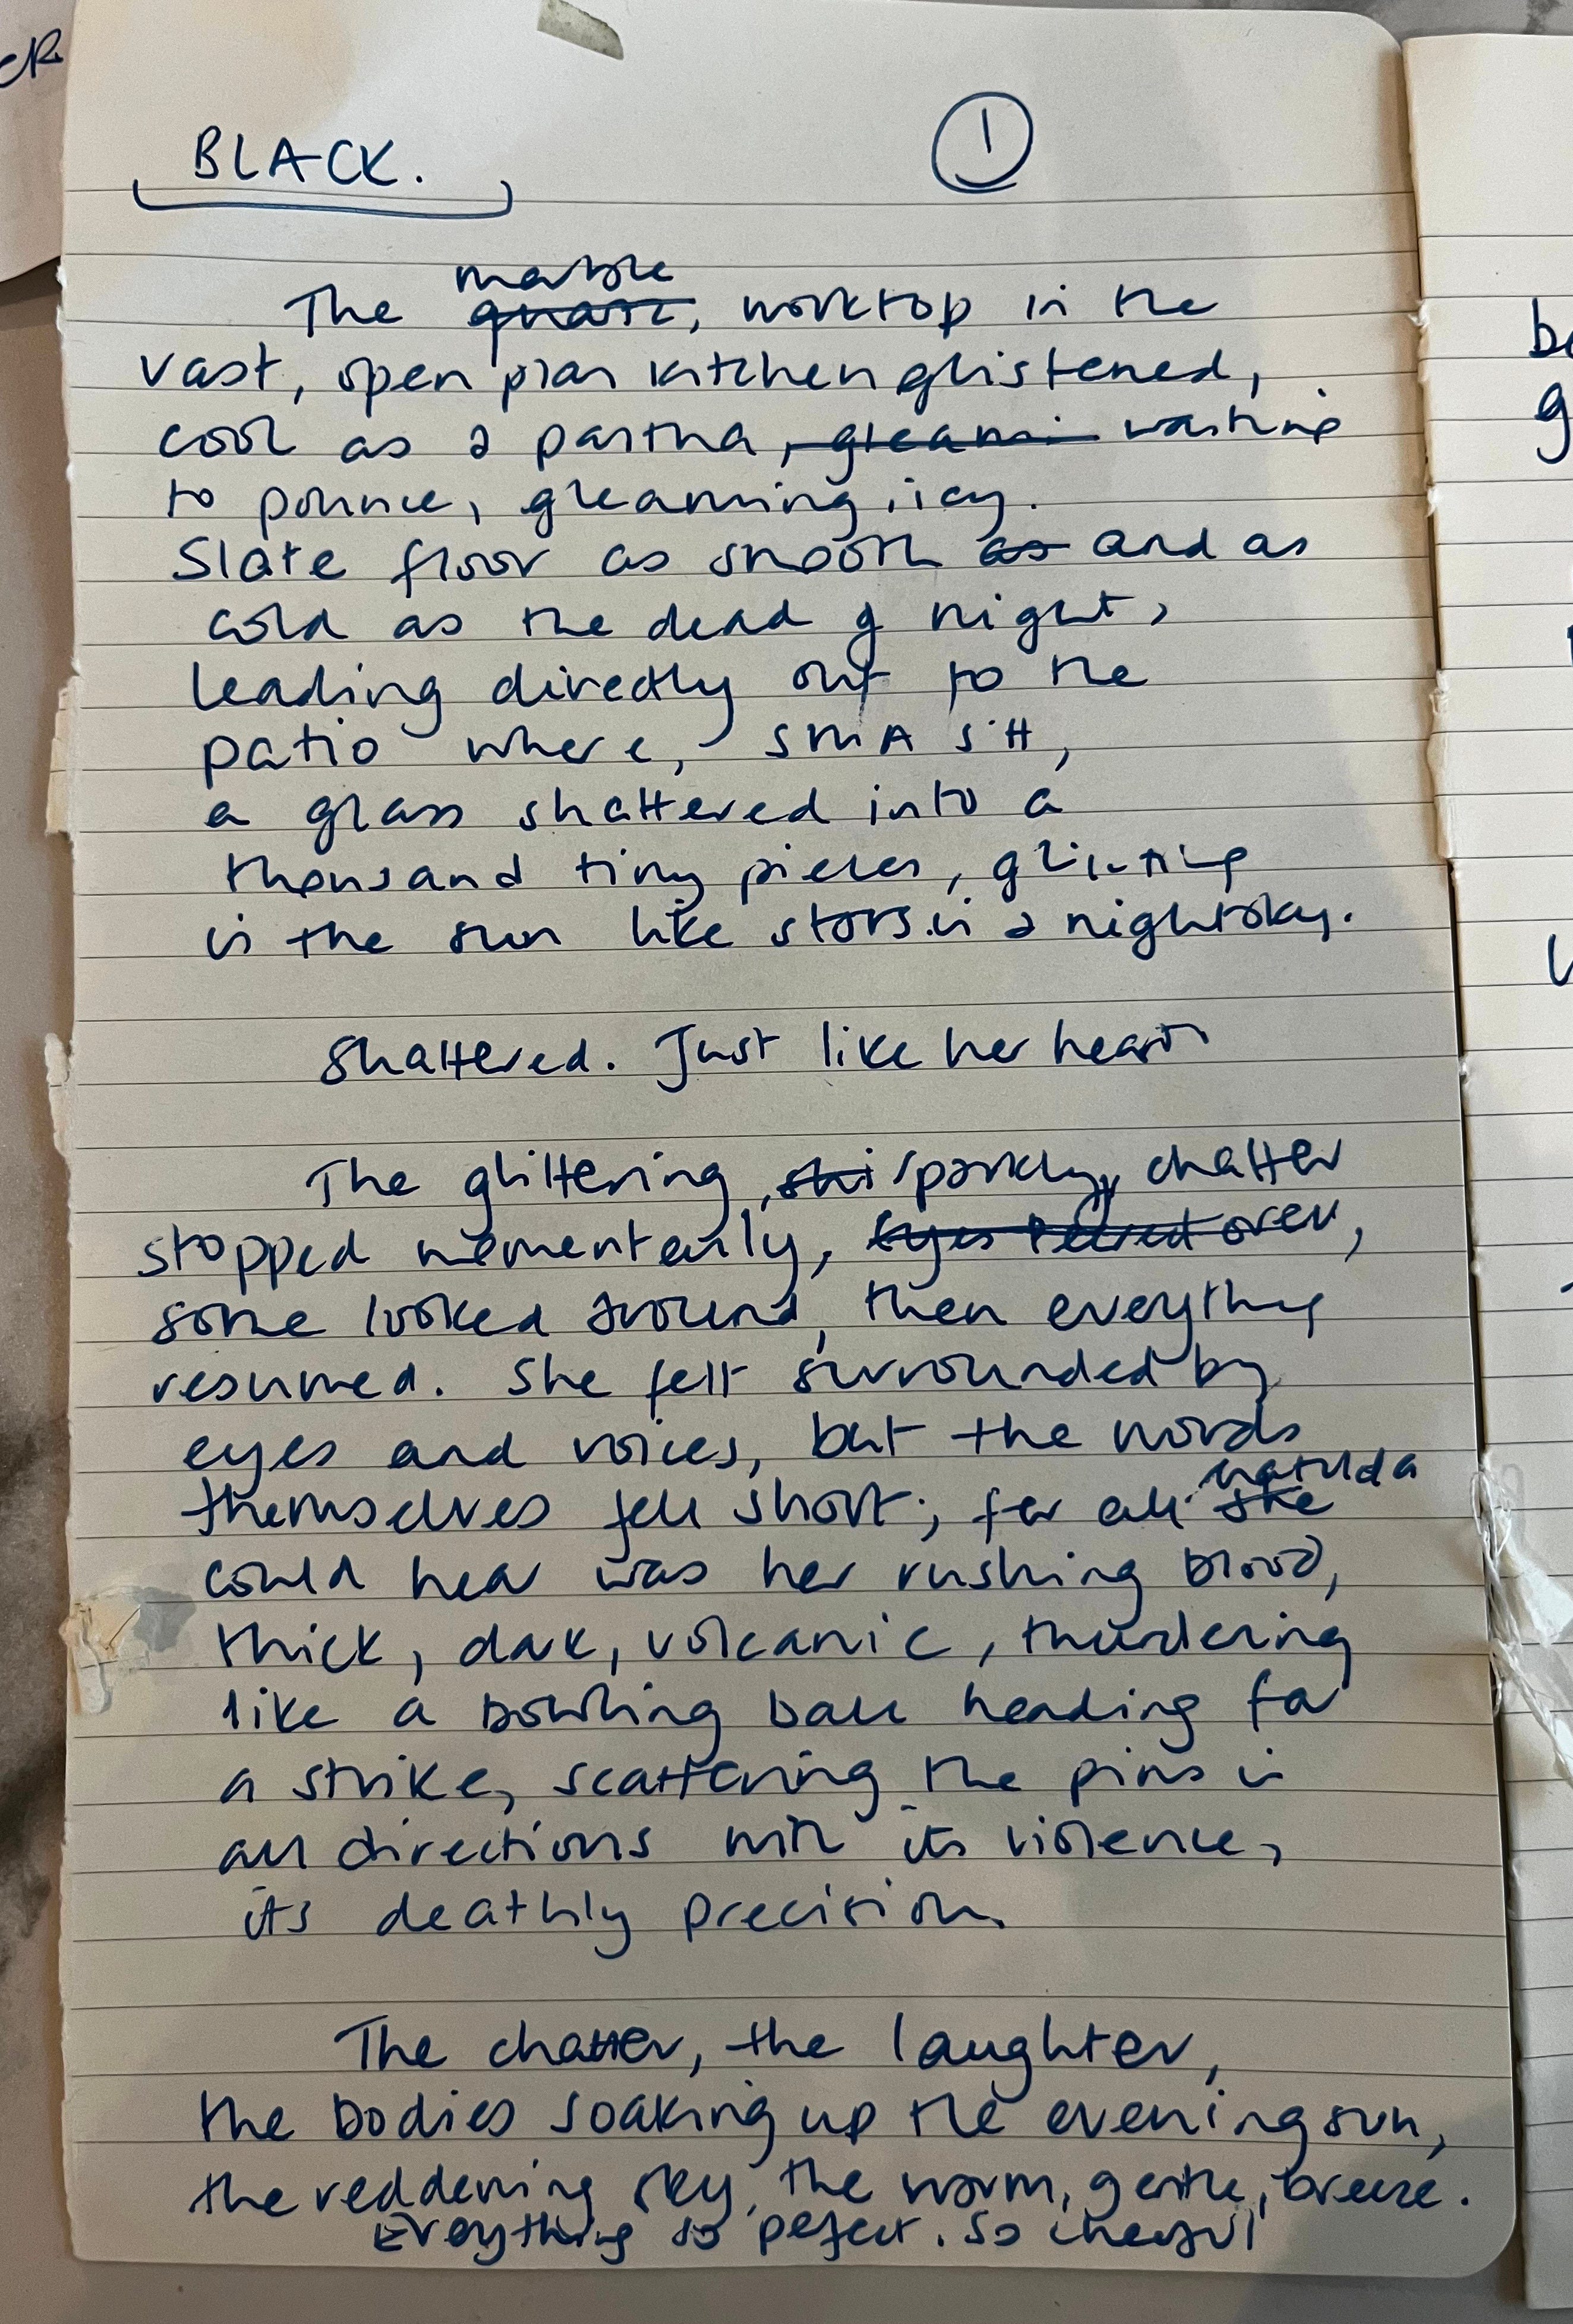 BLACK.
1
marble
The quartz, worktop in the
vast, open plan kitchen glistened,
cool as a panther, gleami waiting
to pounce, gleaming, icy.
Slate floor as smooth as and as
cold as the dead of night,
leading directly out to the
patio where, SMASH,
a glass shattered into a
thousand tiny pieces, glinting
in the sun like stars in a night sky.
Shattered. Just like her heart
The glittering, shi sparkly, chatter
stopped momentarily, Eyes over,
some looked around, then everything
resumed. She felt surrounded by
eyes and voices, but the words
Matilda
themselves fell short; for all she
could hear was her rushing blood,
thick, dark, volcanic, thundering
like a bowling ball heading for
a strike, scattering the pins in
all directions with its violence,
its deathly precision.
The chatter, the laughter,
the bodies soaking up the evening sun,
the reddening sky, the warm, gentle, breeze.
Everything so perfect. So cheerful